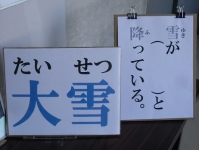 たい せつ
大雪
雪ゆきが
（ ）と
降ふっている。